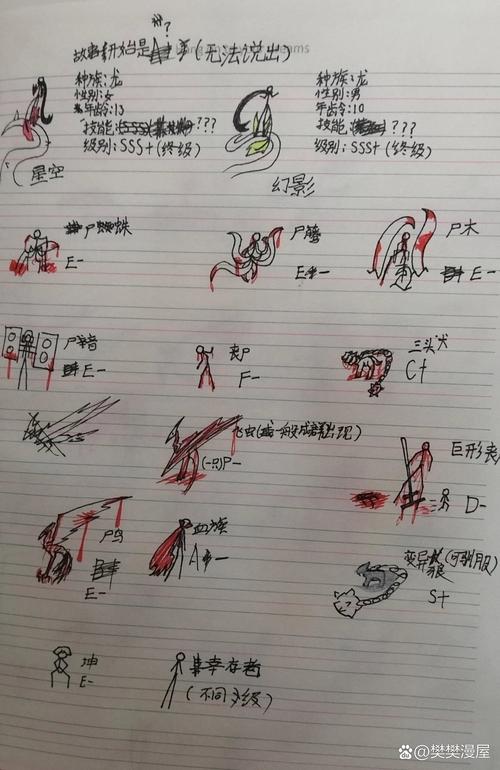 故事开始是
(无法说出)
种族:龙
性别:女
年龄:13
技能: ???
级别:SSS+(终级)
星空
种族:龙
性别:男
年龄:10
技能: ???
级别:SSS+(终级)
幻影
尸蜘蛛
E-
尸蟹
E-
尸木
E-
尸猪
E-
丧尸
F-
三头犬
C+
飞虫(一般成群出现)
(一只)F-
巨形丧
D-
尸鸟
E-
血族
A-
变异狼(可驯服)
S+
坤
E-
幸存者
(不同级)
樊樊漫屋